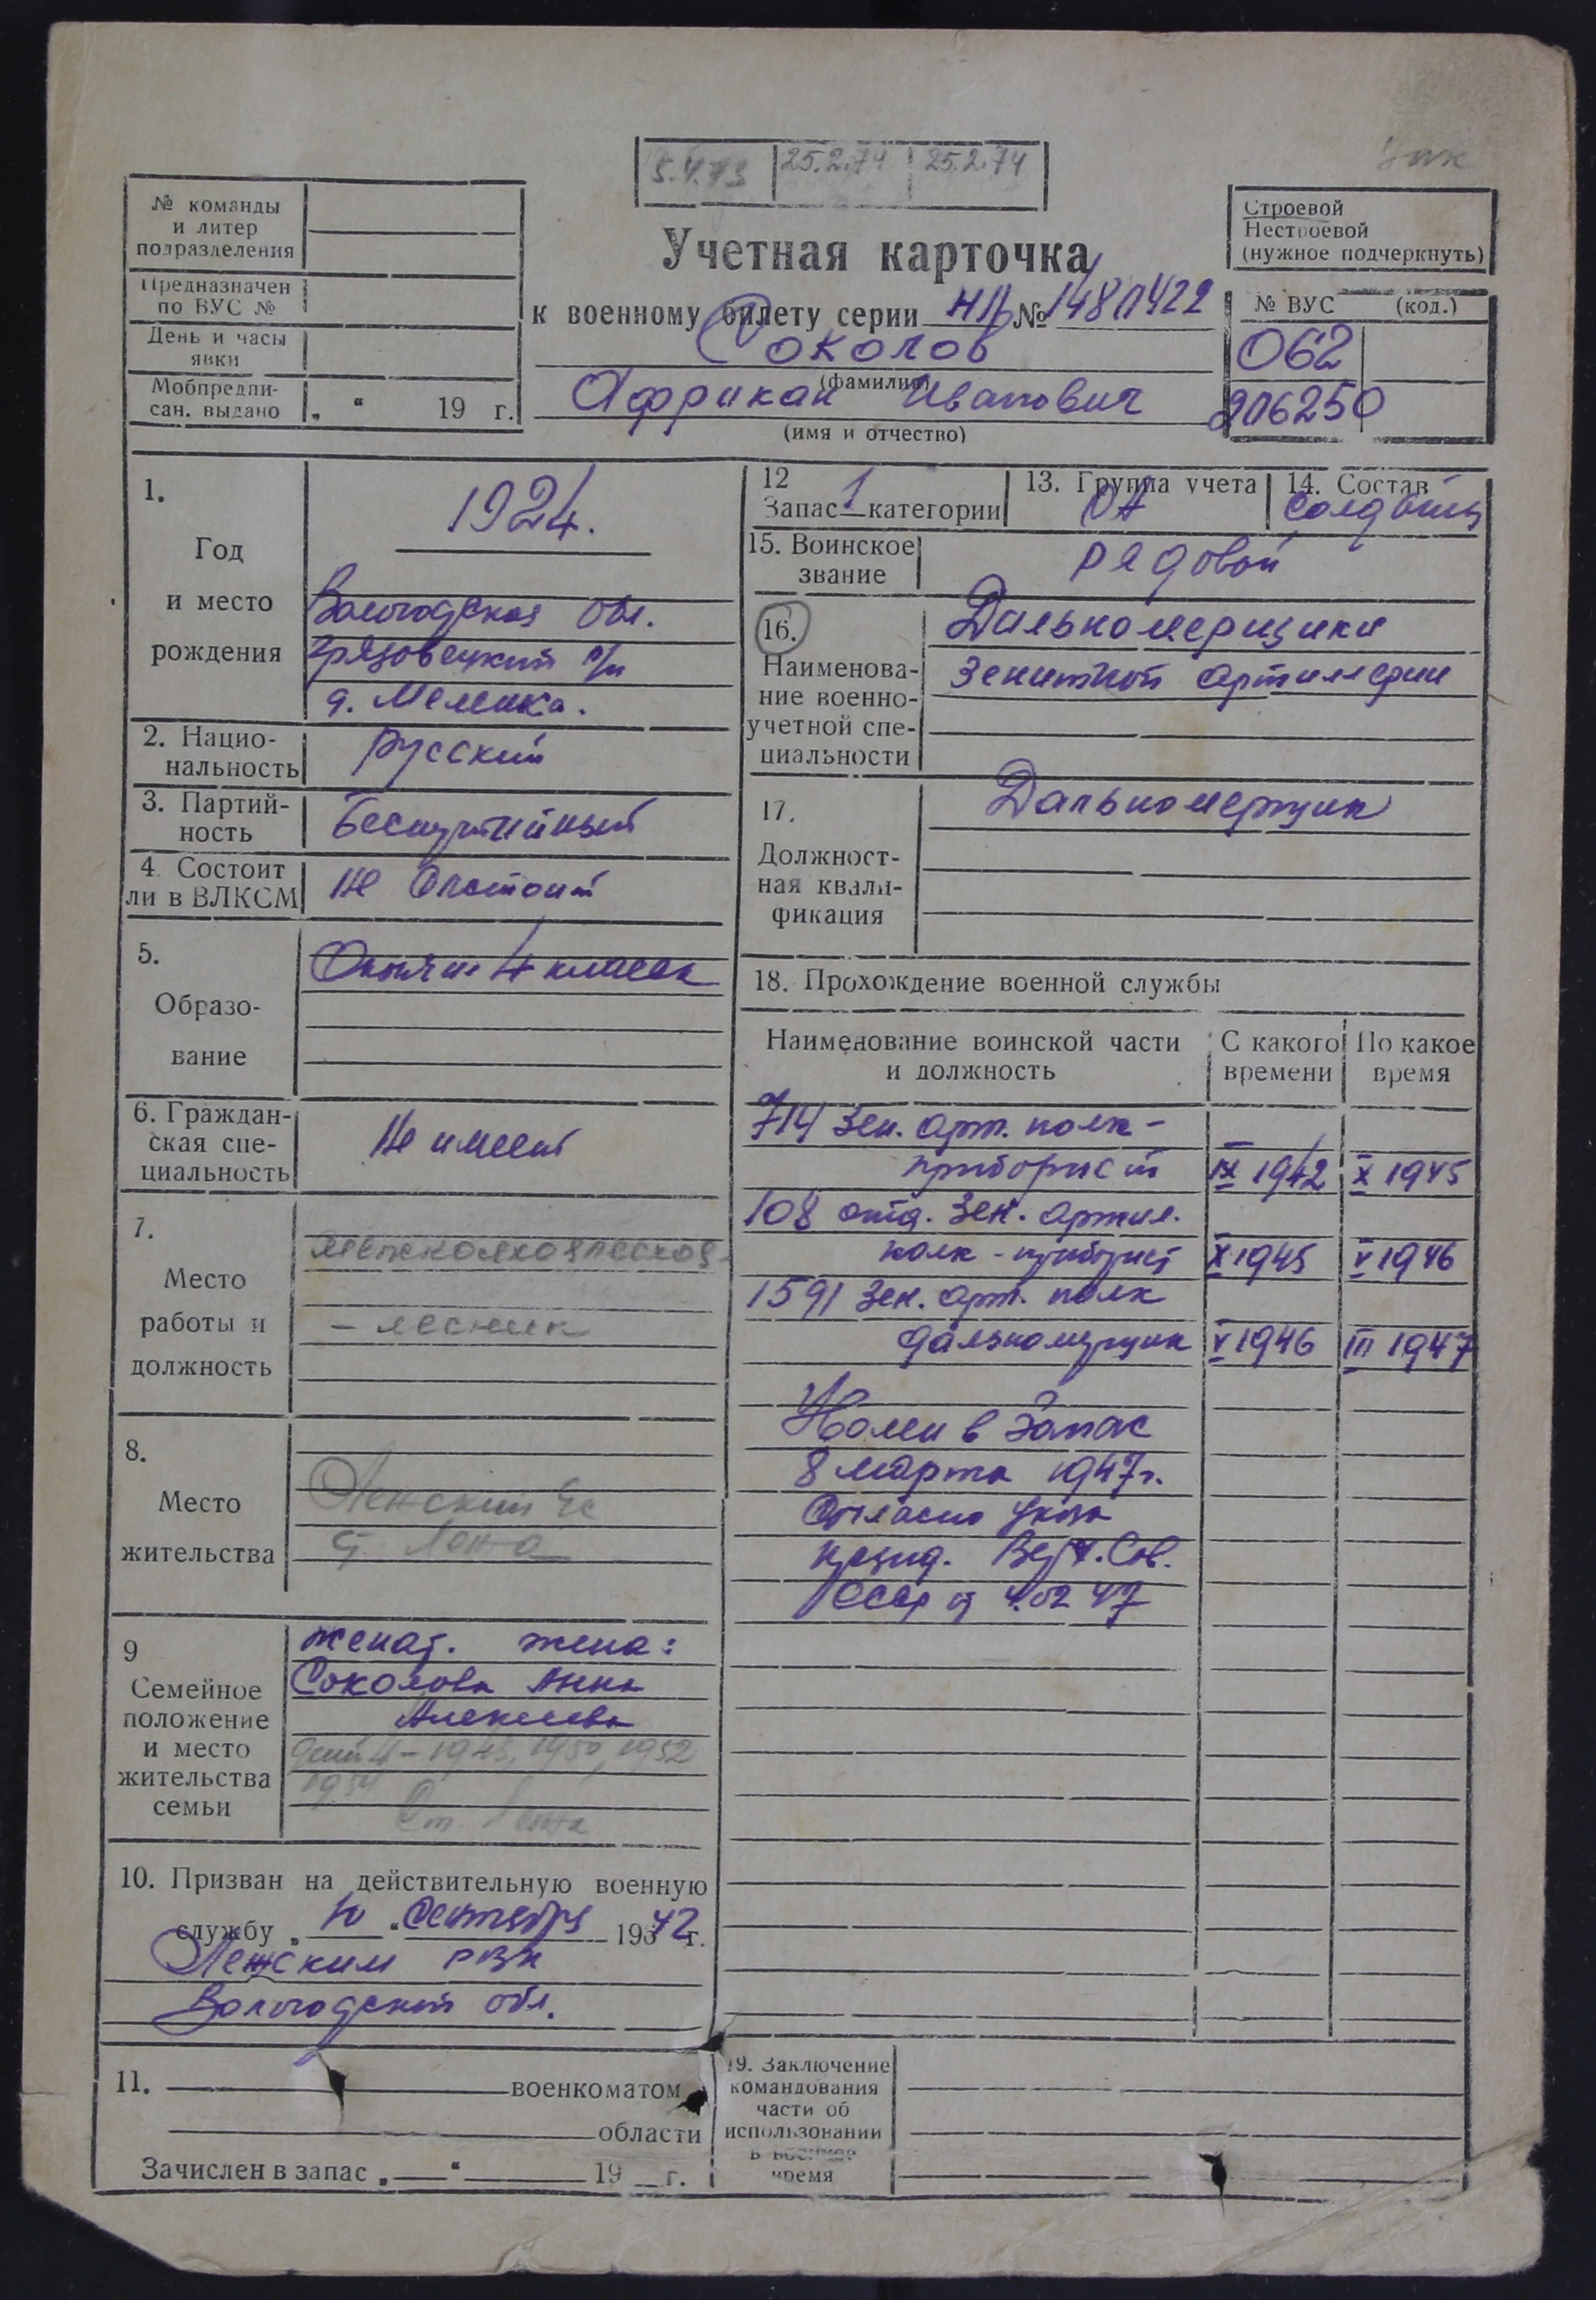 5.4.73 25.2.74 25.2.74
№ команды
и литер
подразделения
Предназначен
по ВУС №
День и часы
явки
Мобпредпи-
сан. выдано „ “ 19 г.
Учетная карточка
к военному билету серии НЛ №
Соколов
(фамилия)
Африкан Иванович
(имя и отчество)
Строевой
Нестроевой
(нужное подчеркнуть)
№ ВУС (код.)
062
1.
Год
и место
рождения
1924.
Вологодская обл.
Грязовецкий р/н
д.
2. Нацио-
нальность
русский
3. Партий-
ность
Беспартийный
4. Состоит
ли в ВЛКСМ
Не Состоит
5.
Образо-
вание
Окончил 4 класса
6. Граждан-
ская спе-
циальность
Не имеет
7.
Место
работы и
должность
- лесник
8.
Место
жительства
Лежский с/с
ст. Лежа
9
Семейное
положение
и место
жительства
семьи
женат. жена:
Соколова Анна
Алексеевна
дети 4 - 1948, 1950, 1952
1954
Ст. Лежа
10. Призван на действительную военную
службу „ 10 “ Сентября 1942 г.
Лежским РВК
Вологодской обл.
11. военкоматом
области
Зачислен в запас „ “ 19 г.
12
Запас 1 категории
13. Группа учета
СА
14. Состав
Солдаты
15. Воинское
звание
рядовой
16.
Наименова-
ние военно-
учетной спе-
циальности
Дальномерщики
Зенитной артиллерии
17.
Должност-
ная квали-
фикация
Дальномерщик
18. Прохождение военной службы
Наименование воинской части
и должность
С какого
времени
По какое
время
714 Зен. арт. полк -
приборист IX 1942 X 1945
108 отд. Зен. артил.
полк - приборист X 1945 V 1946
1591 Зен. арт. полк
дальномерщик V 1946 III 1947
Уволен в Запас
8 марта 1947 г.
Согласно Указа
презид. Верх. Сов.
СССР от 4.02 47
19. Заключение
командования
части об
использовании
в военное
время